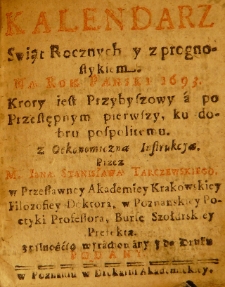 KALENDARZ
Swiąt Rocznych y z progno-
stykiem
NA ROK PANSKI 1693.
Ktory iest Przybyszowy á po
Przestępnym pierwszy, ku do-
bru pospolitemu.
z Oekonomiczną Instrukcyą.
Przez
M. IANA STANISŁAWA
w Przesławney Akademiey Krakowskiey
Filozofiey Doktora, w Poznanskiey Po-
etyki Professora, Bursię Szołdrskiey
z pilnością wyrachowany y do Druku
PODANY
w Poznaniu w Drukarni Akademickiey.